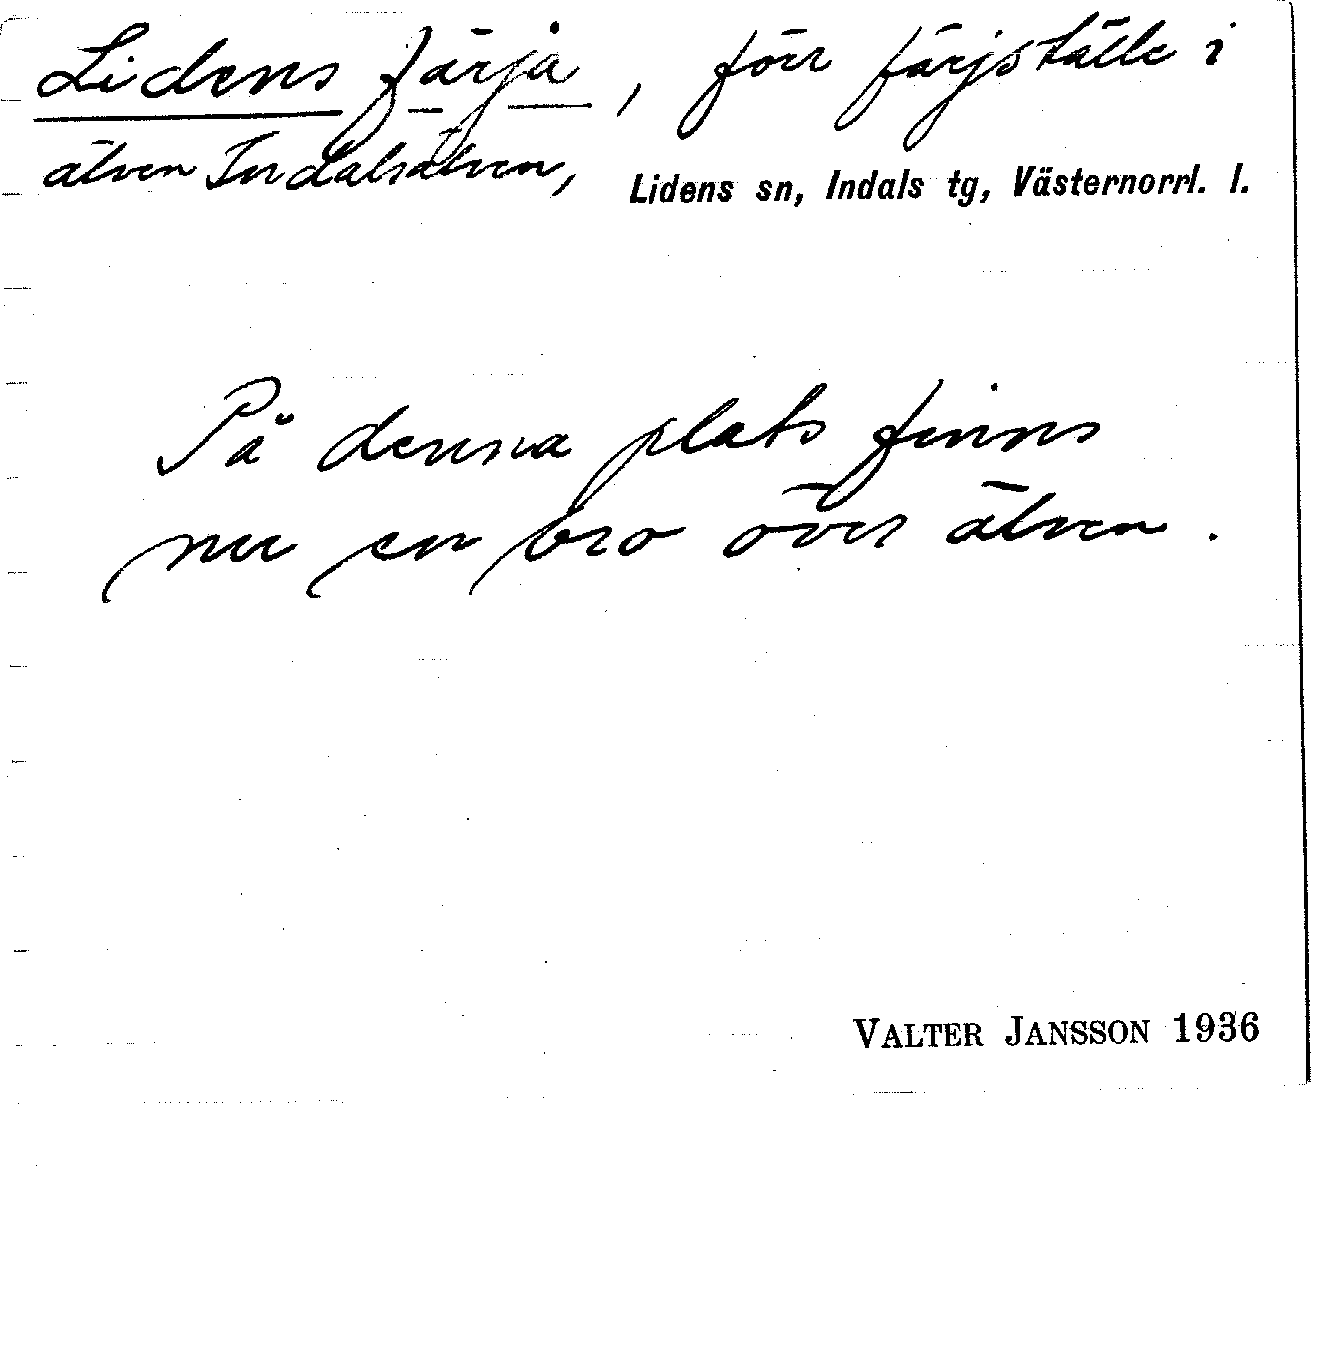 Lidens färja, förr färjställe i
älven Indalsälven, Lidens sn, Indals tg, Västernorrl. l.
På denna plats finns
nu en bro över älven.
VALTER JANSSON 1936